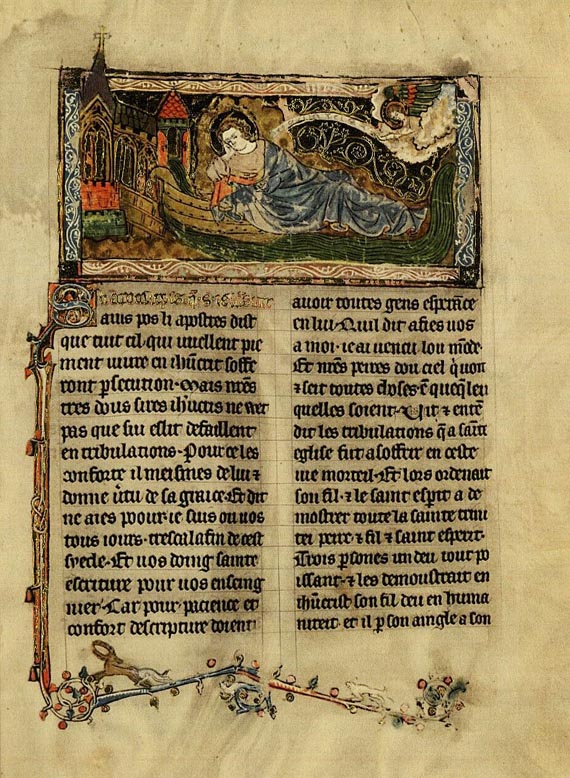 Sains pos li apostres dist
que tuit cil qui vuellent pie
ment vivre en ihucrit soffe
ront persecution. Mais nr̃es
tres dous sires ihucris ne wet
pas que sui eslit defaillent
en tribulations. Pour ce les
conforte il meismes de lui ⁊
donne v̾tu de sa grace. Et dit
ne aies poour. ie suis ou vos
tous iours. tresca la fin de cest
syecle. Et vos doing sainte
escriture pour vos enseing
nier. Car pour pacience et
confort descripture doient
avoir toutes gens esperãce
en lui. Quil dit afies vos
a moi. ie ai vencu lou mõde.
Et nr̃es peires dou ciel q̾uoit
⁊ seit toutes choses. ẽ queq̾ leu
quelles soient. Vit ⁊ entẽ
dit les tribulations q̃ a sainte
eglise fut a soffrir en ceste
vie morteil. Et lors ordenait
son fil. ⁊ le saint esprit a de
mostrer toute la sainte trini
tei peire ⁊ fil ⁊ saint esperit.
Trois p̱sones un deu tout po
issant. ⁊ les demoustrait en
ihucrist son fil deu en huma
niteit. et il p̱ son aingle a son